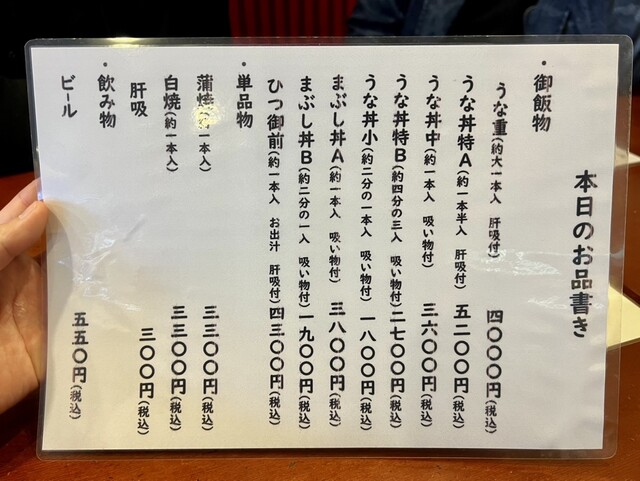 本日のお品書き
・御飯物
うな重(約大一本入 肝吸付) 四〇〇〇円(税込)
うな丼特A(約一本半入 肝吸付) 五二〇〇円(税込)
うな丼中(約一本入 吸い物付) 三六〇〇円(税込)
うな丼特B(約四分の三入 吸い物付) 二七〇〇円(税込)
うな丼小(約二分の一本入 吸い物付) 一八〇〇円(税込)
まぶし丼A(約一本入 吸い物付) 三八〇〇円(税込)
まぶし丼B(約二分の一入 吸い物付) 一九〇〇円(税込)
ひつ御前(約一本入 お出汁 肝吸付) 四三〇〇円(税込)
・単品物
蒲焼(約一本入) 三三〇〇円(税込)
白焼(約一本入) 三三〇〇円(税込)
肝吸 三〇〇円(税込)
・飲み物
ビール 五五〇円(税込)